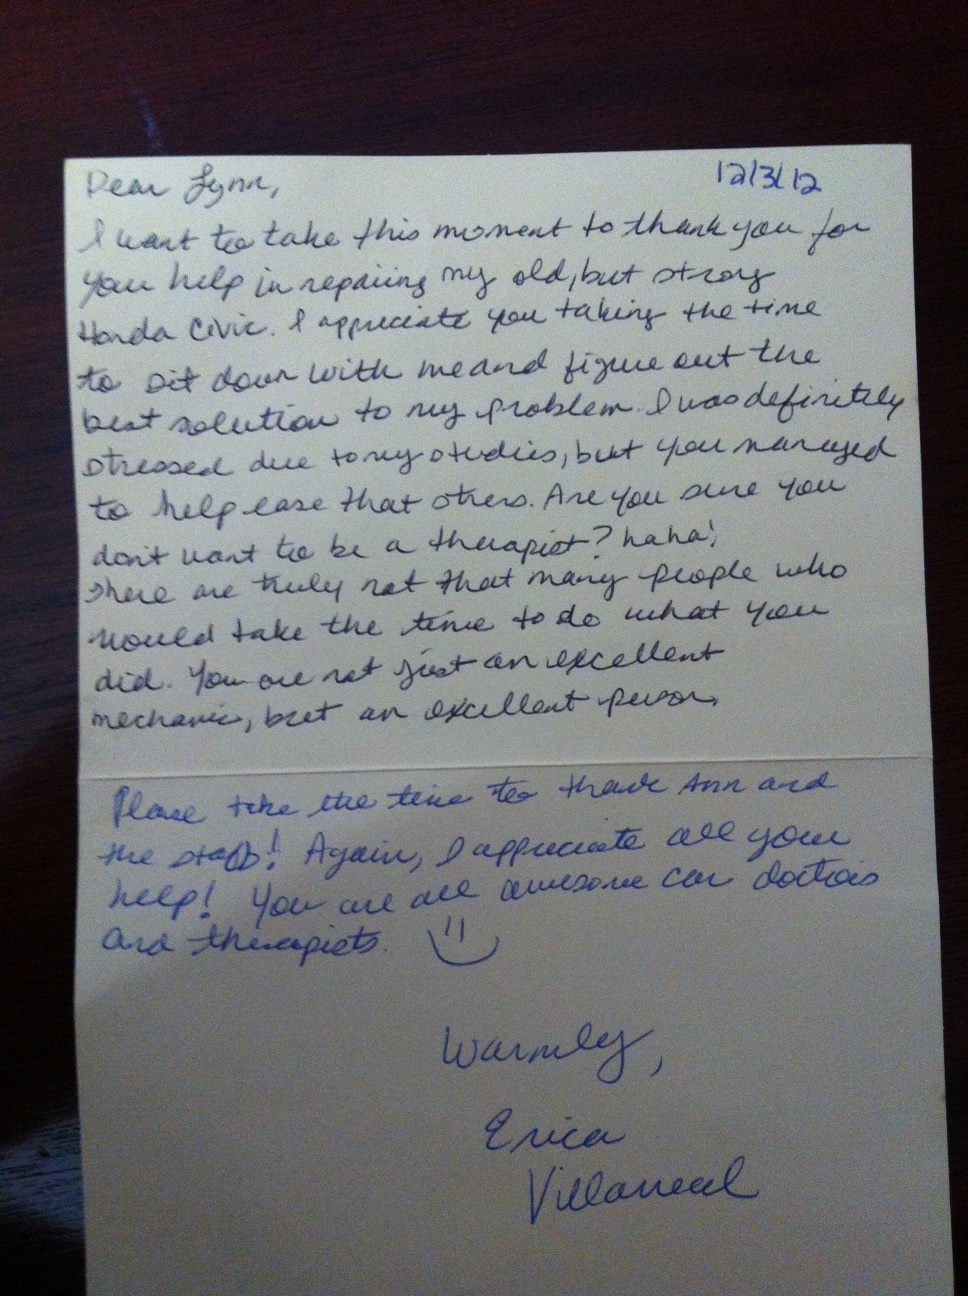 12/3/12
Dear Lynn,
I want to take this moment to thank you for
your help in repairing my old, but strong
Honda Civic. I appreciate you taking the time
to sit down with me and figure out the
best solution to my problem. I was definitely
stressed due to my studies, but you managed
to help ease that stress. Are you sure you
don't want to be a therapist? haha!
There are truly not that many people who
would take the time to do what you
did. You are not just an excellent
mechanic, but an excellent person.
Please take the time to thank Ann and
the staff! Again, I appreciate all your
help! You are all awesome car doctors
and therapists.
Warmly,
Erica
Villarreal